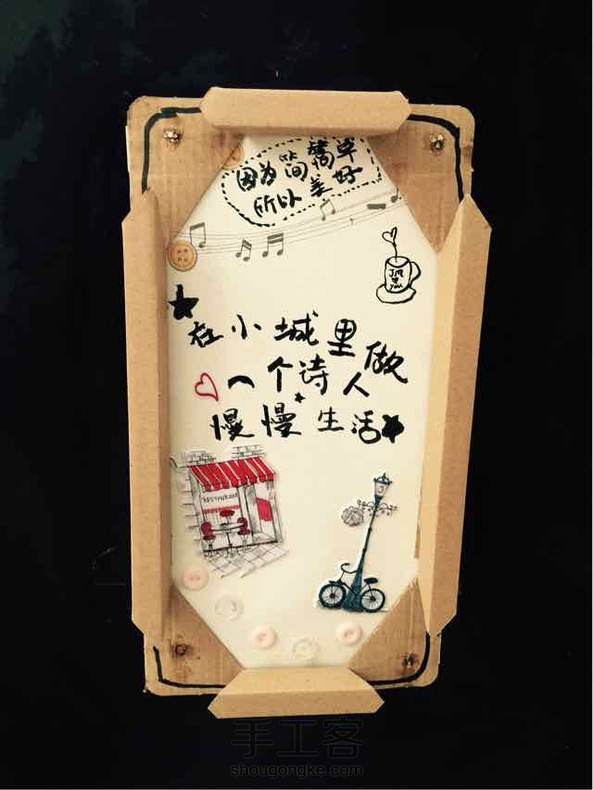 因为简简单
所以美好
在小城里做
一个诗人
慢慢生活
手工客
shougongke.com